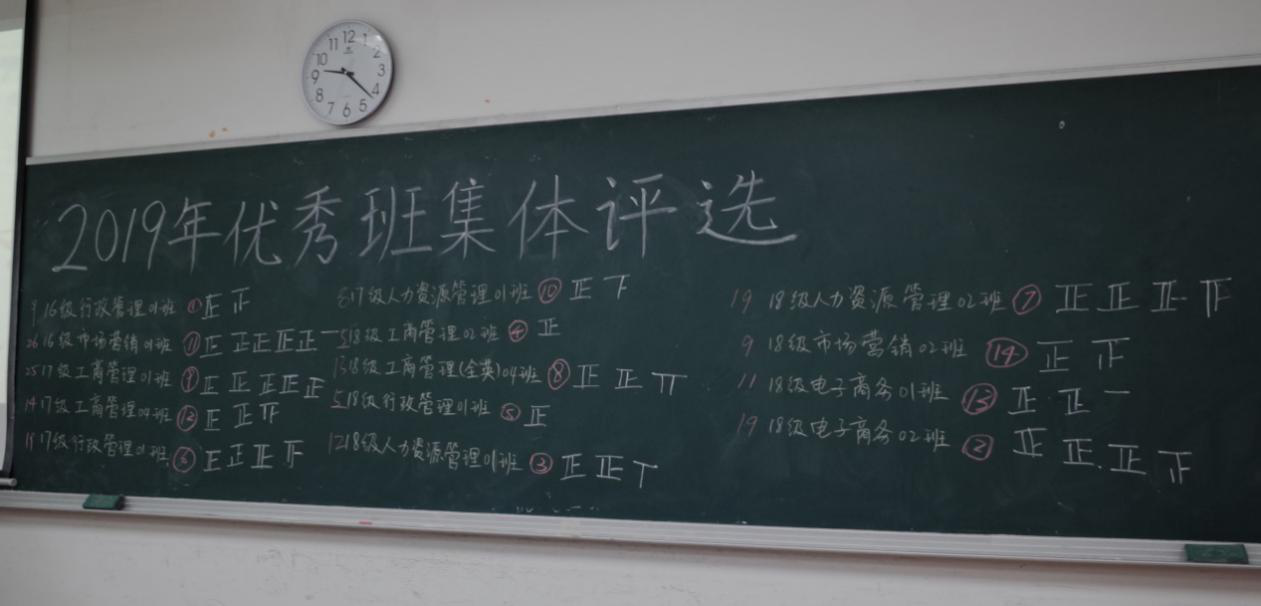 12 1 2 3 4 5 6 7 8 9 10 11
2019年优秀班集体评选
9 16级行政管理01班 ① 正 正
26 16级市场营销01班 ⑪ 正 正 正 正 正 一
25 17级工商管理01班 ⑨ 正 正 正 正 正
14 17级工商管理04班 ⑫ 正 正
17级行政管理01班 ⑥ 正 正 正
8 17级人力资源管理01班 ⑩ 正 下
5 18级工商管理02班 ④ 正
13 18级工商管理(全英)04班 ⑧ 正 正
5 18级行政管理01班 ⑤ 正
12 18级人力资源管理01班 ③ 正 正 丅
19 18级人力资源管理02班 ⑦ 正 正 正
9 18级市场营销02班 ⑭ 正
11 18级电子商务01班 ⑬ 正 正 一
19 18级电子商务02班 ② 正 正 正